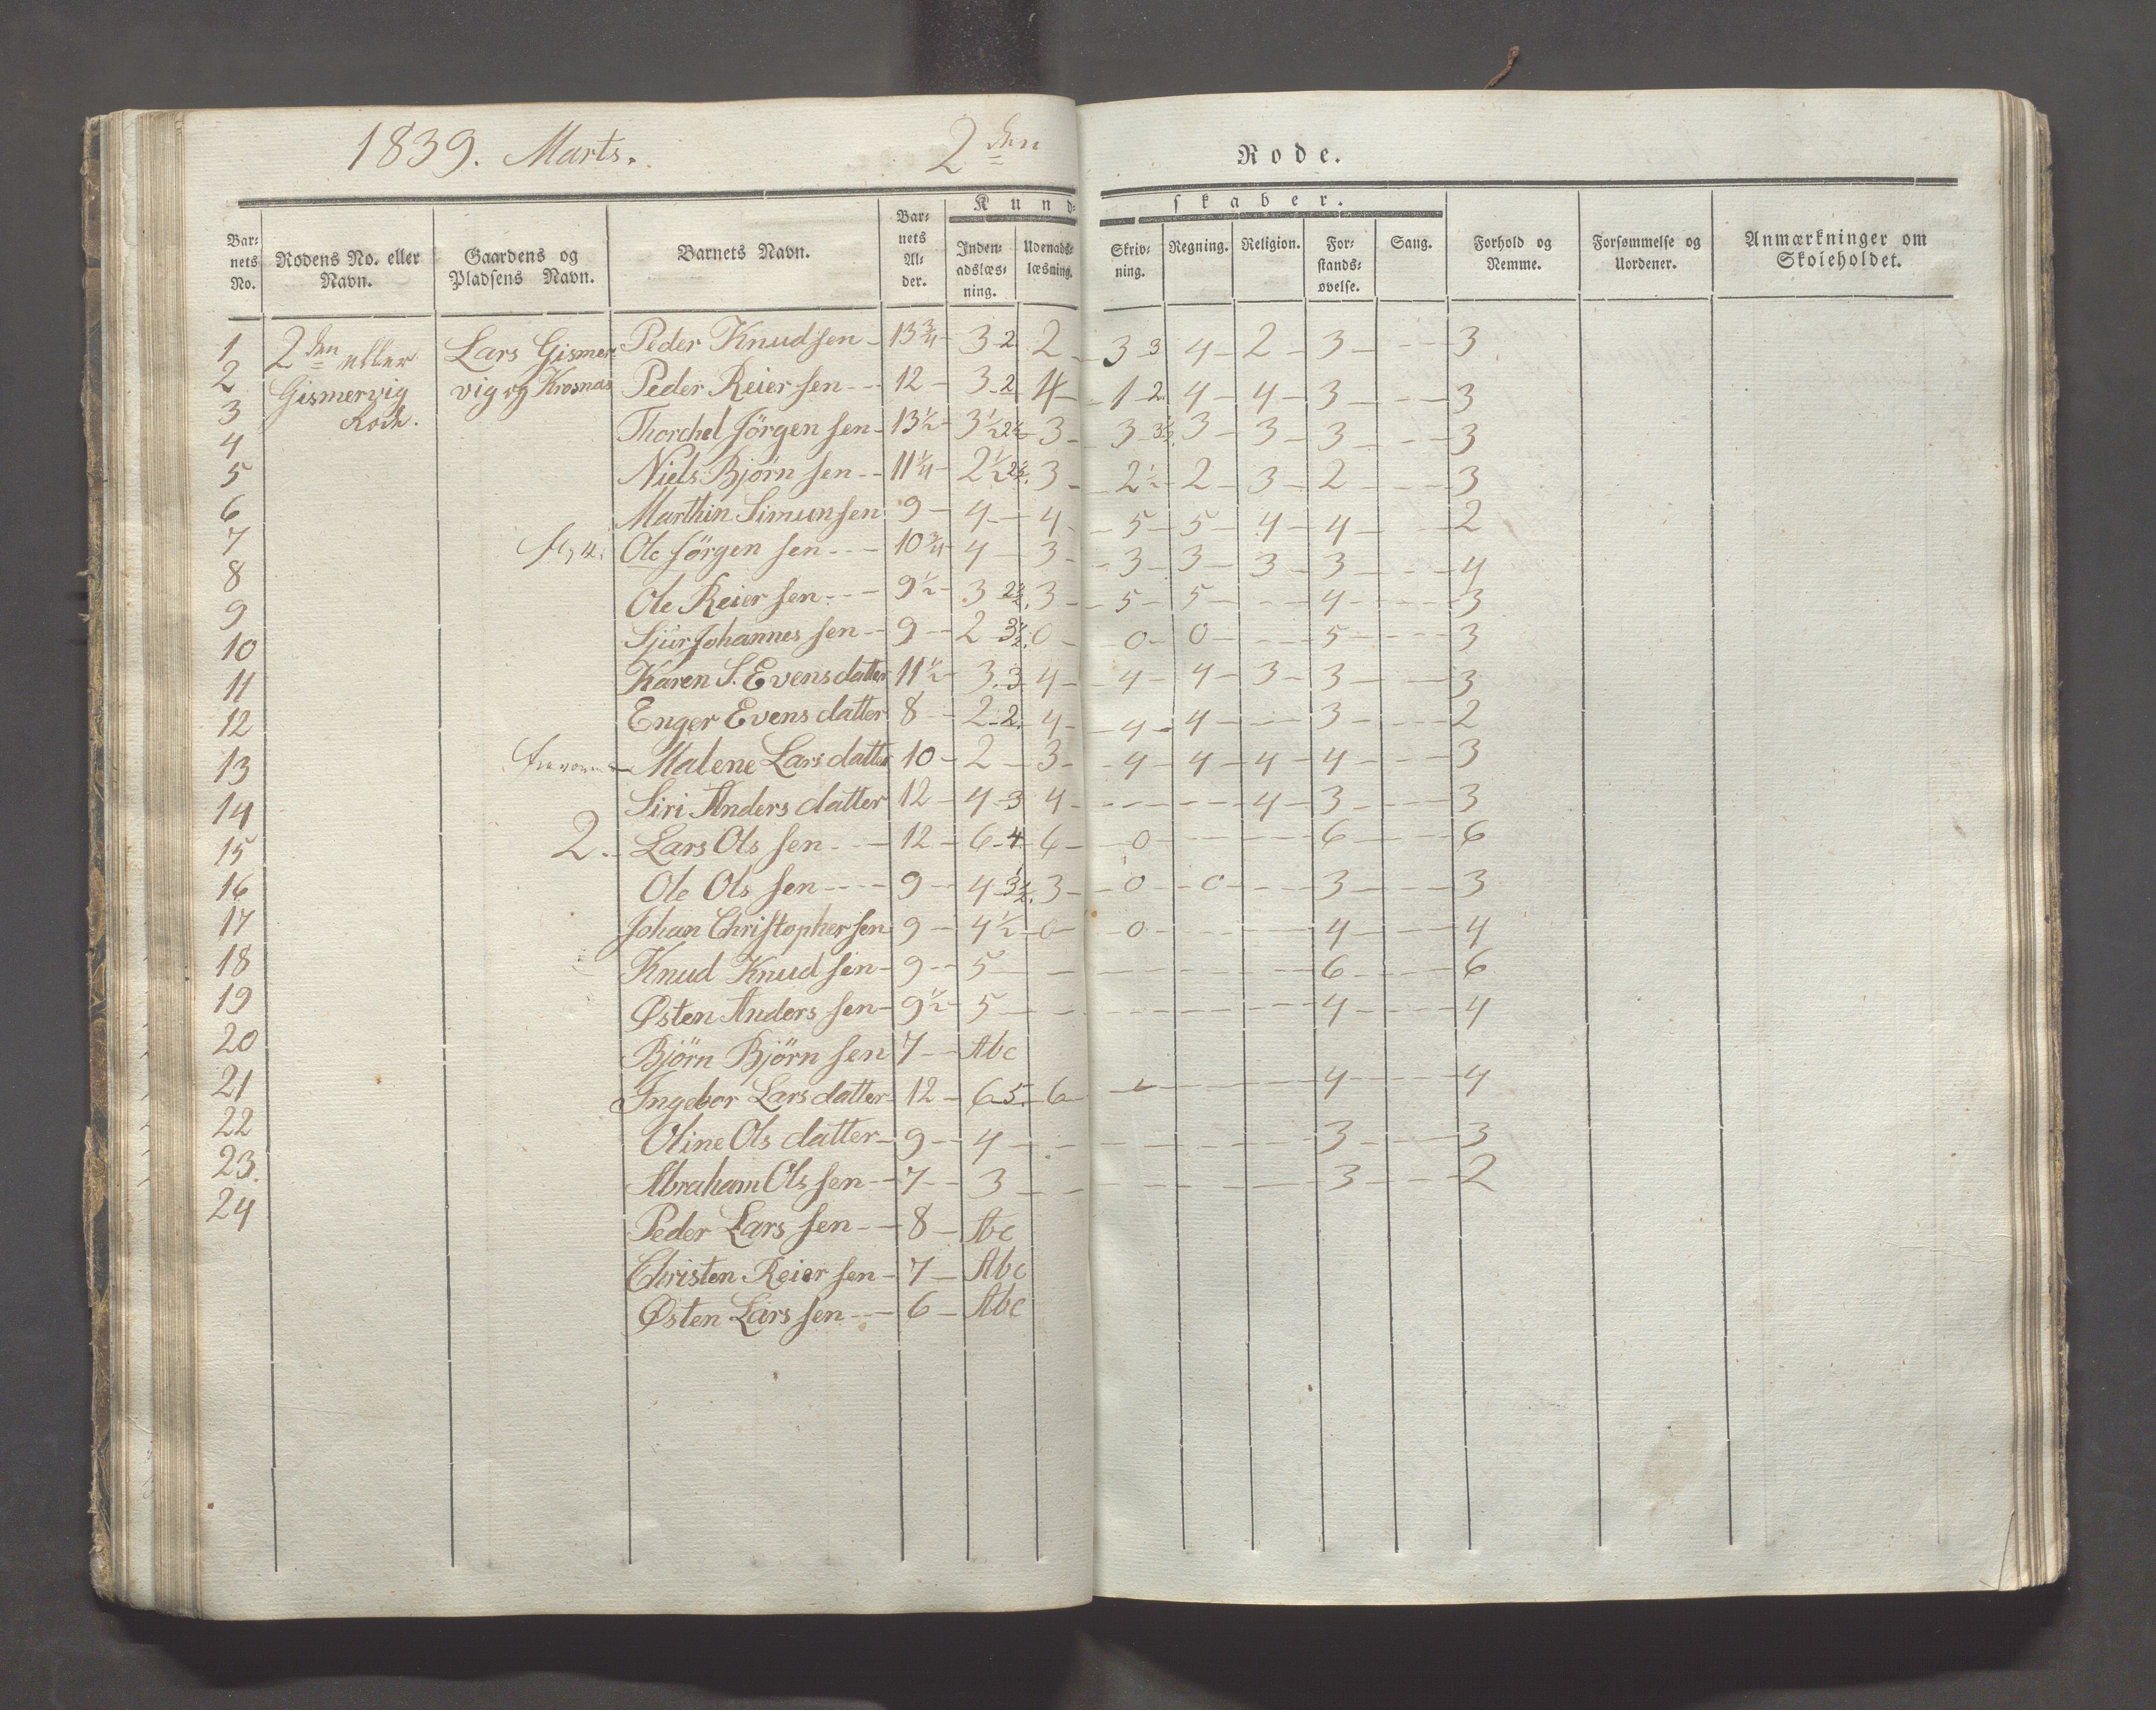 1839. Marts. 2den Rode.
Kund- skaber.
Bar- nets No. Rodens No. eller Navn. Gaardens og Pladsens Navn. Barnets Navn. Bar- nets Al- der. Inden- adslæs- ning. Udenads- læsning. Skriv- ning. Regning. Religion. For- stands- øvelse. Sang. Forhold og Nemme. Forsømmelse og Uordener. Anmærkninger om Skoleholdet.
1 2den eller Lars Gismer Peder Knudsen - 13 3/4 - 3-2 2 - 3-3 4 - 2 - 3 - - - 3
2 Gismervig vig og Krosnas Peder Reiersen - - 12 - 3-2 4 - 1-2 4 - 4 - 3 - - - 3
3 Rode. Thorchel Jörgensen - 13 1/2 - 3 1/2 2 1/2 3 - 3 3 1/2 3 - 3 - 3 - - - 3
4 Niels Bjørnsen - - 11 1/4 - 2 1/2 2 1/2 3 - 2 1/2 - 2 - 3 - 2 - - - 3
5 Marthin Simunsen 9 - 4 - 4 - 5 - 5 - 4 - 4 - - 2
6 Ole Jörgensen - - - 10 3/4 - 4 - 3 - 3 - 3 - 3 - 3 - - - 4
7 Ole Reiersen - - - 9 1/2 - 3 2 1/2 3 - 5 - 5 - - - 4 - - - 3
8 Sjur Johannessen - - 9 - - 2 3 1/2 0 - 0 - 0 - - - 5 - - - 3
9 Karen S. Evensdatter 11 1/2 - 3.3 4 - 4 - 4 - 3 - 3 - - - 3
10 Enger Evensdatter 8 - - 2-2 4 - 4 - 4 - - - 3 - - - 2
11 Malene Larsdatter 10 - 2 - 3 - 4 - 4 - 4 - 4 - - - 3
12 Siri Andersdatter 12 - 4-3 4 - - - - - - 4 - 3 - - - 3
13 2. Lars Olssen - - - 12 - 6-4 6 - 0 - - - - 6 - - - 6
14 Ole Olssen - - - - 9 - - 4 3 1/2 3 - 0 - 0 - - - 3 - - - 3
15 Johan Christophersen 9 - 4 1/2 - 0 - 0 - - - - 4 - - - 4
16 Knud Knudsen - 9 - - 5 - - - - - - 6 - - - 6
17 Østen Anderssen - 9 1/2 - 5 - - - - - - 4 - - - 4
18 Björn Björnsen 7 - - Abc
19 Ingebor Larsdatter - 12 - 6-5 - 6 - - - - - 4 - - - 4
20 Oline Olsdatter - 9 - - 4 - - - - - - 3 - - - 3
21 Abraham Olssen - - 7 - - 3 - - - - - - 3 - - - 2
22 Peder Larssen - - 8 - Abc
23. Christen Reiersen - 7 - Abc
24 Østen Larssen - - - 6 - Abc